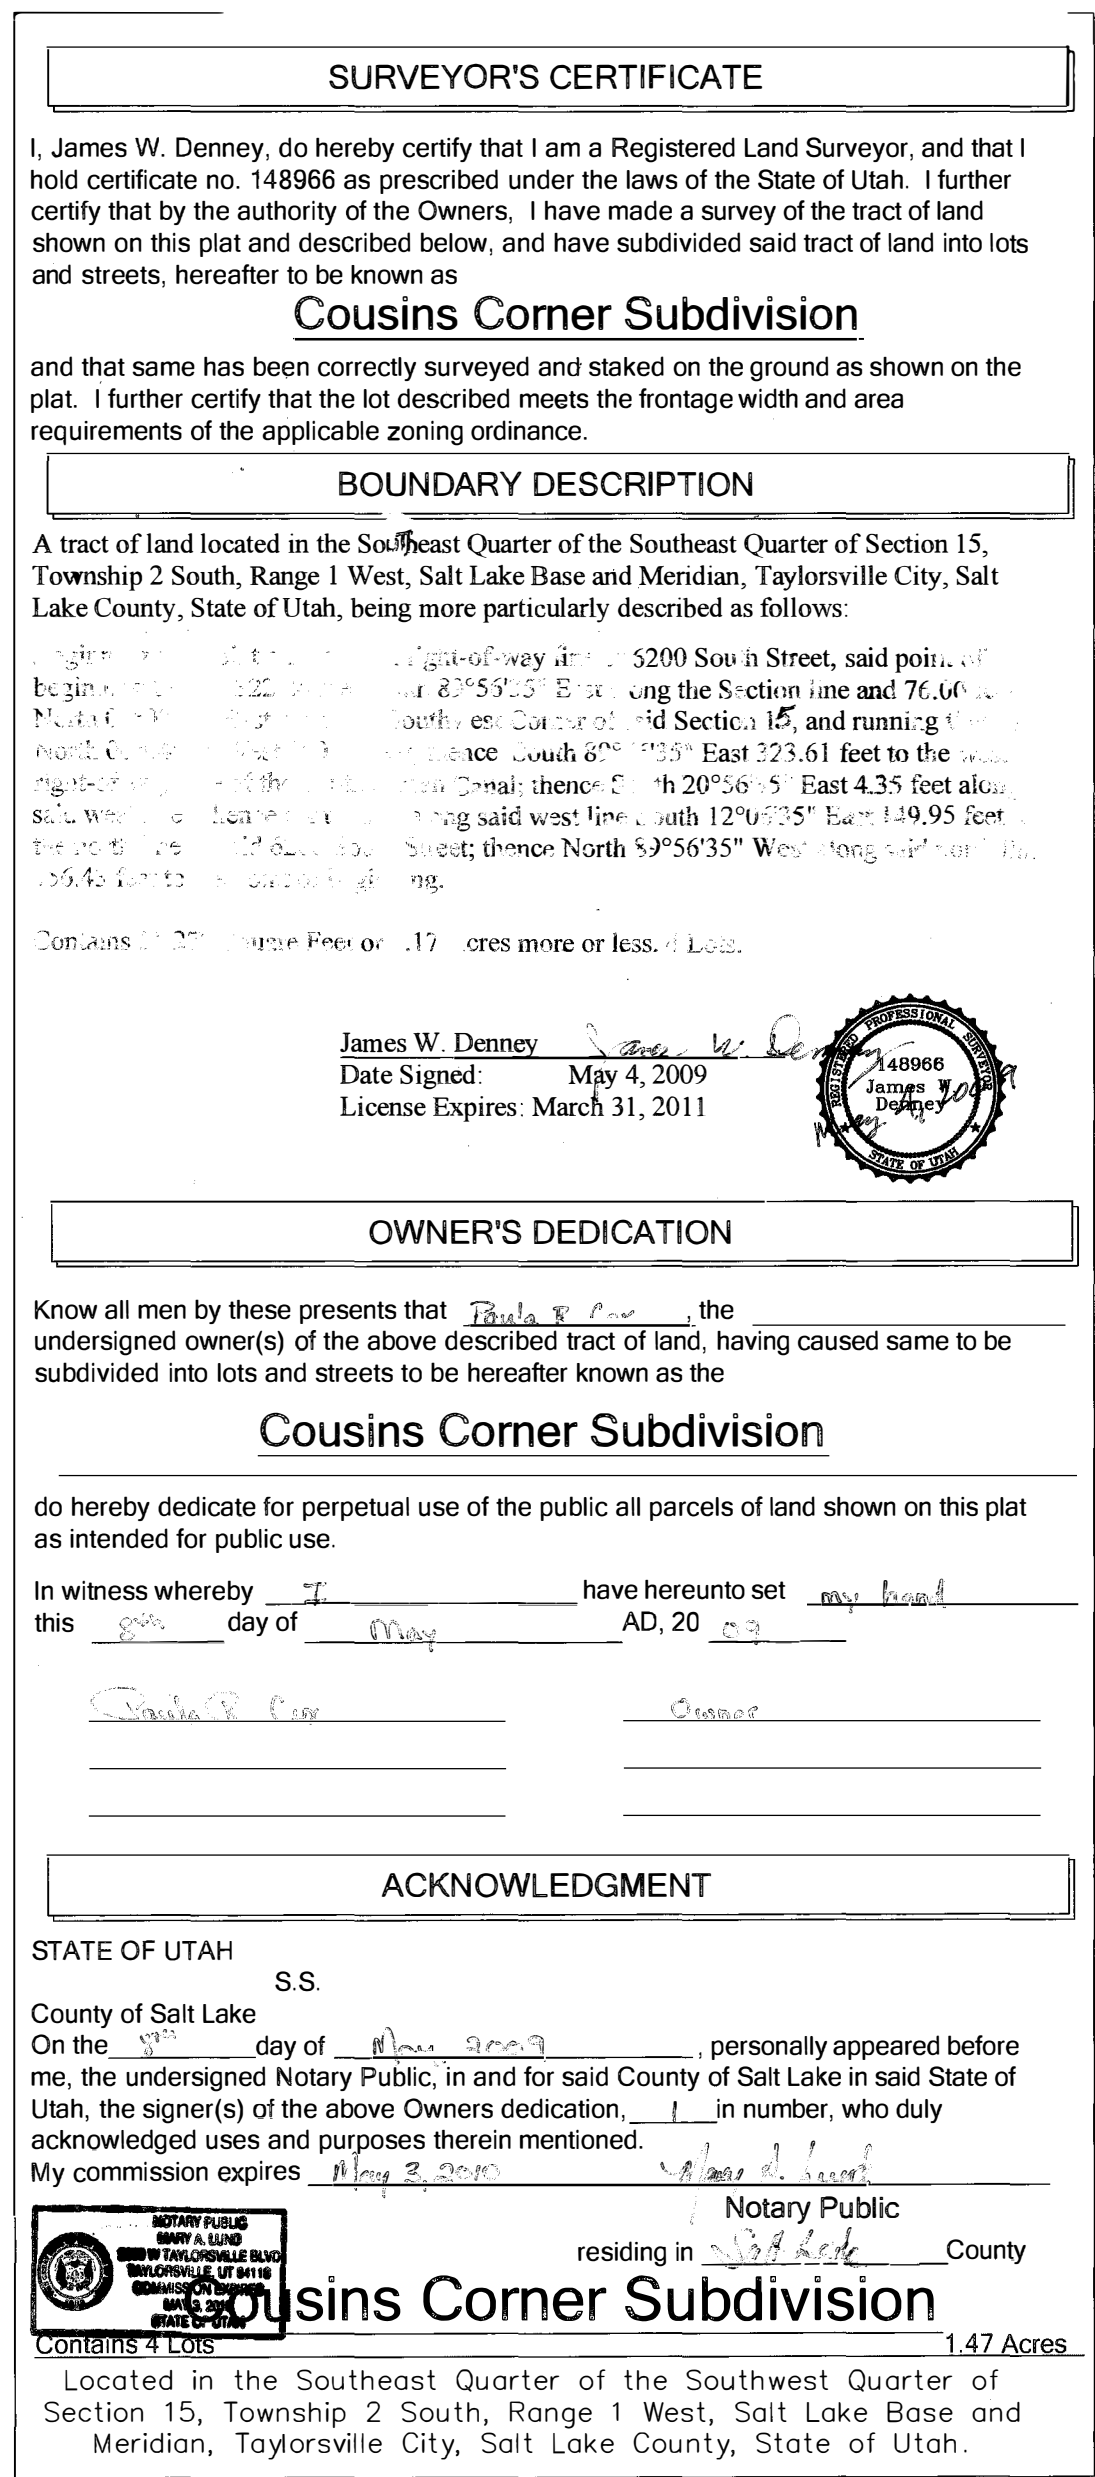 SURVEYOR'S CERTIFICATE
I, James W. Denney, do hereby certify that I am a Registered Land Surveyor, and that I
hold certificate no. 148966 as prescribed under the laws of the State of Utah. I further
certify that by the authority of the Owners, I have made a survey of the tract of land
shown on this plat and described below, and have subdivided said tract of land into lots
and streets, hereafter to be known as
Cousins Corner Subdivision
and that same has been correctly surveyed and staked on the ground as shown on the
plat. I further certify that the lot described meets the frontage width and area
requirements of the applicable zoning ordinance.
BOUNDARY DESCRIPTION
A tract of land located in the Southeast Quarter of the Southeast Quarter of Section 15,
Township 2 South, Range 1 West, Salt Lake Base and Meridian, Taylorsville City, Salt
Lake County, State of Utah, being more particularly described as follows:
right-of-way 6200 South Street, said point of
89°56'35" East along the Section line and 76.00
North Corner of said Section 15, and running
North thence South East 323.61 feet to the
right-of of the Canal; thence 20°56' East 4.35 feet along
said west along said west line South East 149.95 feet
the north Street; thence North 89°56'35" West along said
Contains Square Feet or acres more or less. 4 Lots.
James W. Denney James W. Denney
Date Signed: May 4, 2009
License Expires: March 31, 2011
REGISTERED PROFESSIONAL SURVEYOR
148966
James W.
Denney
May 4, 2009
STATE OF UTAH
OWNER'S DEDICATION
Know all men by these presents that Paula R Cox, the
undersigned owner(s) of the above described tract of land, having caused same to be
subdivided into lots and streets to be hereafter known as the
Cousins Corner Subdivision
do hereby dedicate for perpetual use of the public all parcels of land shown on this plat
as intended for public use.
In witness whereby I have hereunto set my hand
this 8th day of May AD, 20 09
Paula R Cox Owner
ACKNOWLEDGMENT
STATE OF UTAH
S.S.
County of Salt Lake
On the 8th day of May 2009, personally appeared before
me, the undersigned Notary Public, in and for said County of Salt Lake in said State of
Utah, the signer(s) of the above Owners dedication, 1 in number, who duly
acknowledged uses and purposes therein mentioned.
My commission expires May 3, 2010 Mary A. Lund
Notary Public
residing in Salt Lake County
NOTARY PUBLIC
MARY A. LUND
W TAYLORSVILLE BLVD
TAYLORSVILLE, UT 84118
COMMISSION EXPIRES
MAY 3, 2010
STATE OF UTAH
Cousins Corner Subdivision
Contains 4 Lots 1.47 Acres
Located in the Southeast Quarter of the Southwest Quarter of
Section 15, Township 2 South, Range 1 West, Salt Lake Base and
Meridian, Taylorsville City, Salt Lake County, State of Utah.